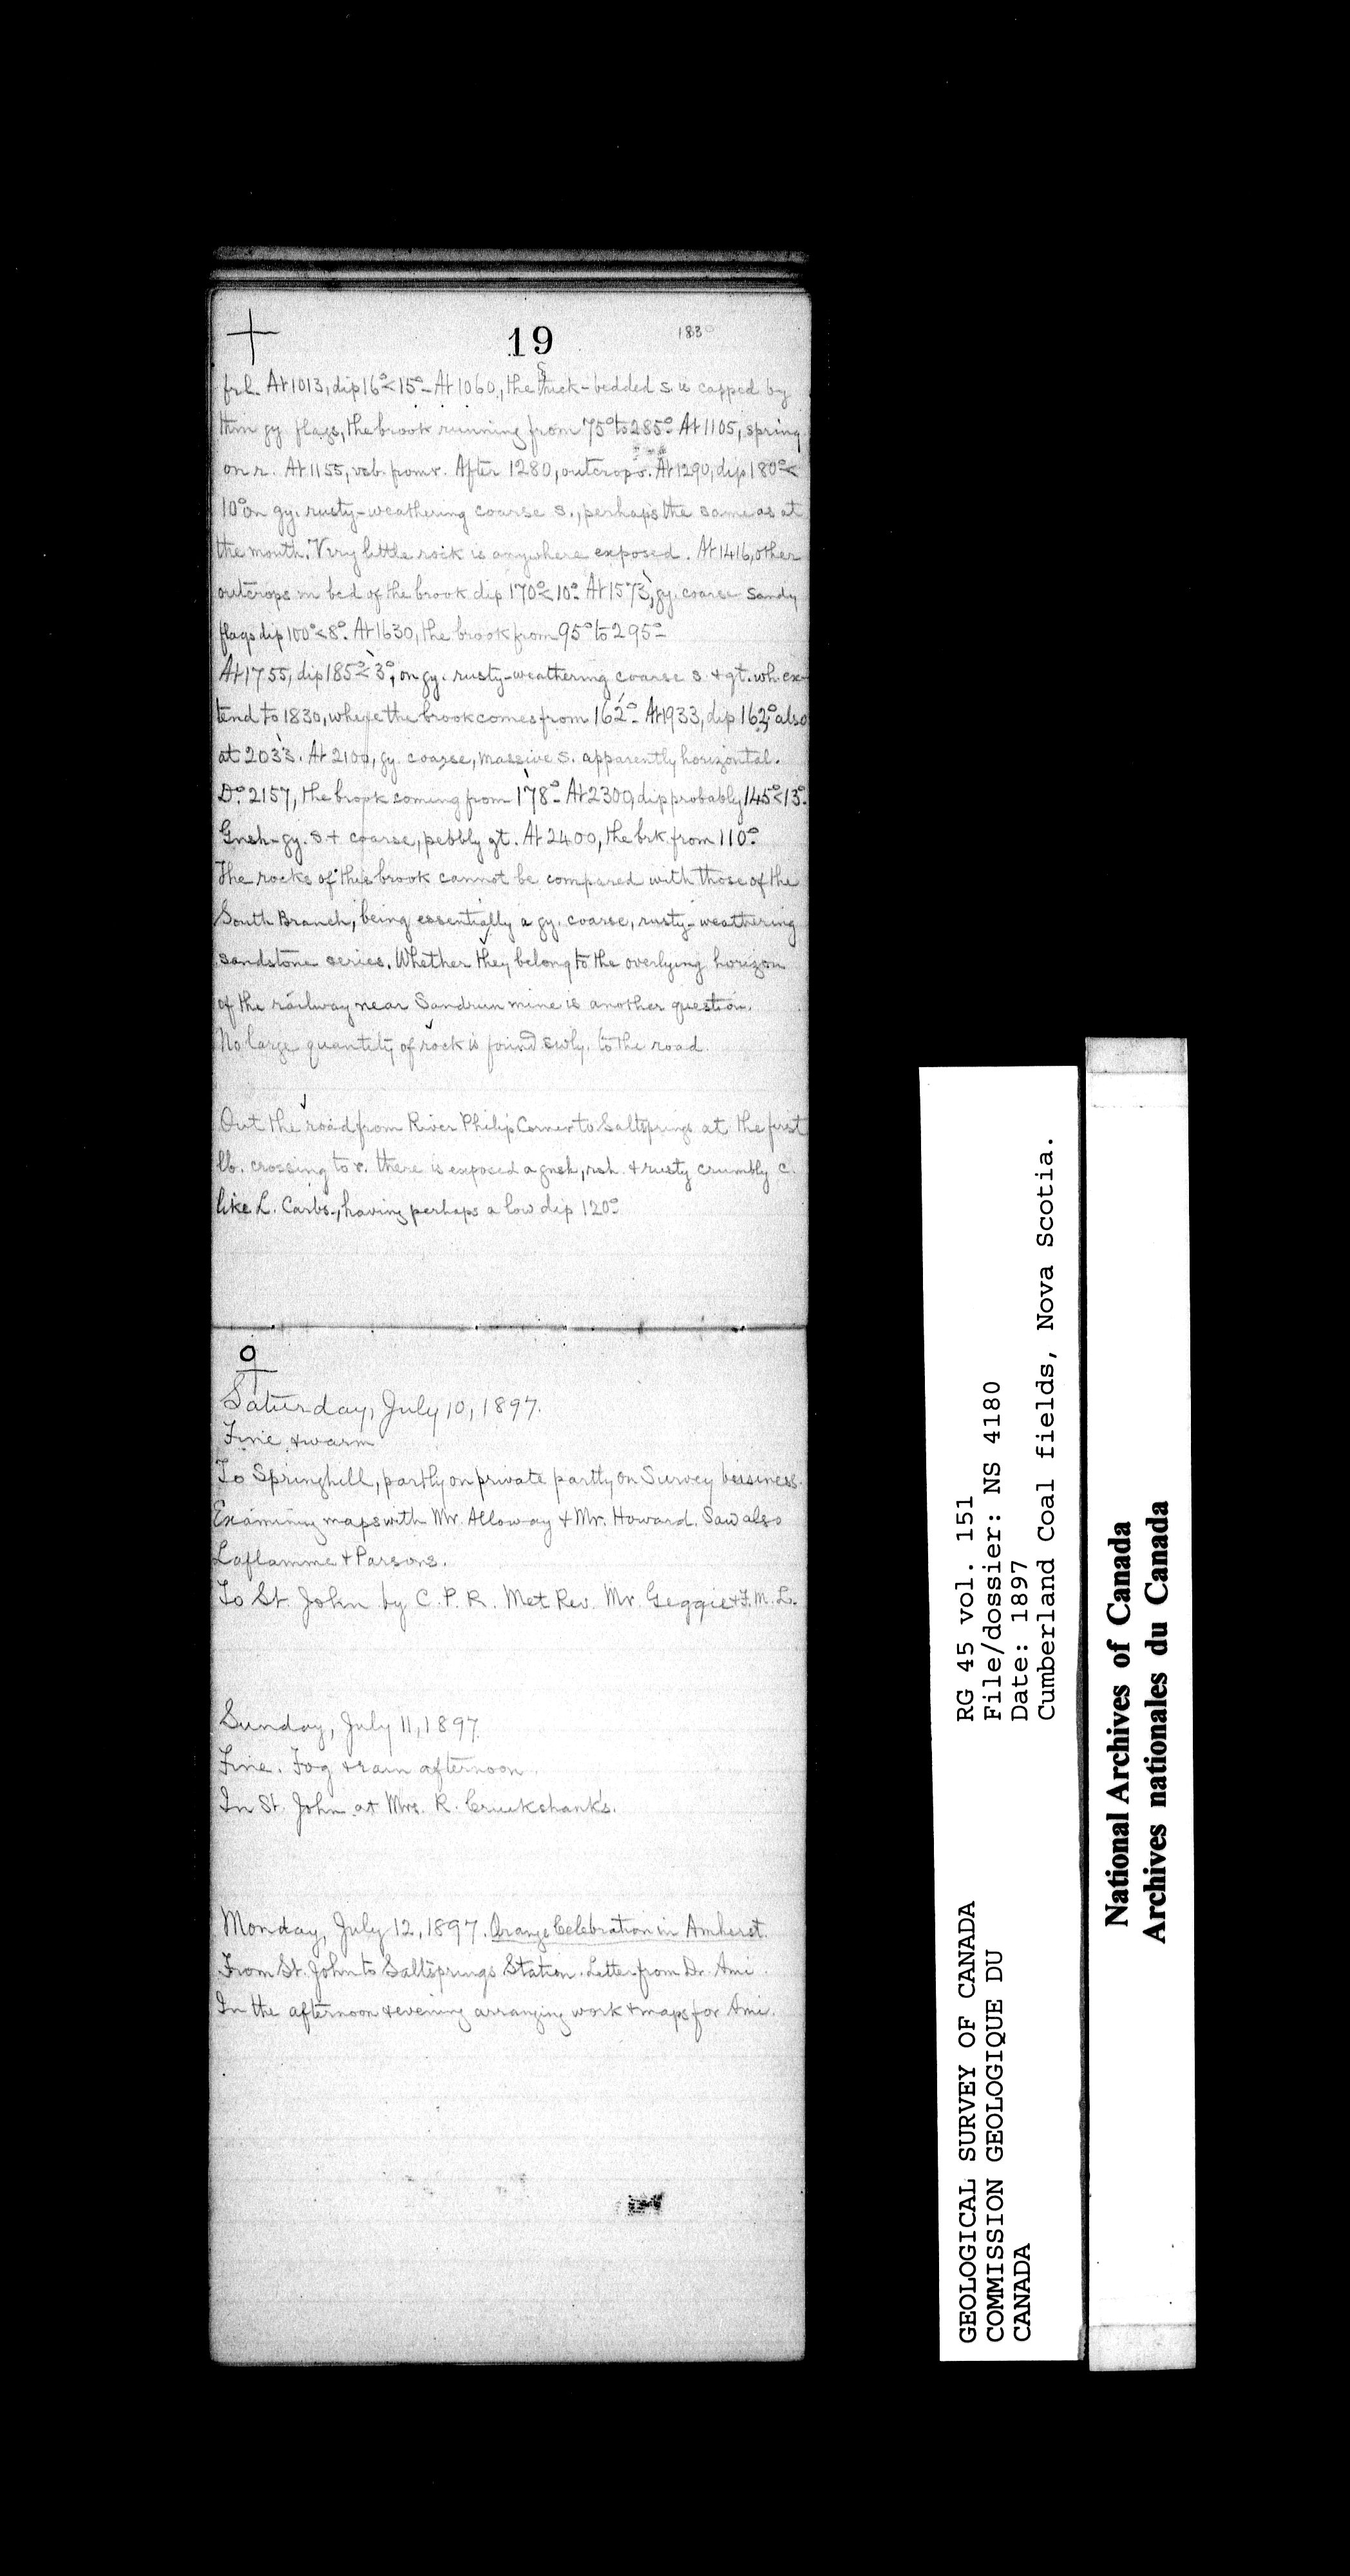 19
183
fr. l. At 1013, dip 16°<15°. At 1060, the thick-bedded s is capped by
thin gy flags, the brook running from 75° to 285°. At 1105, spring
on r. At 1155, vsb. from r. After 1280, outcrops. At 1290, dip 180°<
10° on gy. rusty-weathering coarse s., perhaps the same as at
the mouth. Very little rock is anywhere exposed. At 1416, other
outcrops in bed of the brook dip 170°<10°. At 1573, gy. coarse sandy
flags dip 100°<8°. At 1630, the brook from 95° to 295°
At 1755, dip 185°<3°, on gy. rusty-weathering coarse s. + gt. wh. ex-
tend to 1830, where the brook comes from 162°. At 1933, dip 162° also
at 2033. At 2100, gy. coarse, massive s. apparently horizontal.
Do. 2157, the brook coming from 178°. At 2300, dip probably 145°<13°.
Gnsh-gy. s + coarse, pebbly gt. At 2400, the brk from 110°
The rocks of this brook cannot be compared with those of the
South Branch, being essentially a gy. coarse, rusty-weathering
sandstone series. Whether they belong to the overlying horizon
of the railway near Sandrun mine is another question.
No large quantity of rock is found swly. to the road.
Out the road from River Philip Corner to Saltsprings at the first
lb. crossing to r. there is exposed a gnsh, rsh. + rusty crumbly c.
like L. Carbs., having perhaps a low dip 120°
9
Saturday, July 10, 1897.
Fine + warm
To Springhill, partly on private partly on Survey business.
Examining maps with Mr. Alloway + Mr. Howard. Saw also
Laflamme + Parsons.
To St. John by C. P. R. Met Rev. Mr. Geggie + F. M. L.
Sunday, July 11, 1897.
Fine. Fog + rain afternoon.
In St. John at Mrs. R. Cruikshank's.
Monday, July 12, 1897. Orange Celebration in Amherst.
From St. John to Saltsprings Station. Letter from Dr. Ami.
In the afternoon + evening arranging work + maps for Ami.
GEOLOGICAL SURVEY OF CANADA
COMMISSION GEOLOGIQUE DU
CANADA
RG 45 vol. 151
File/dossier: NS 4180
Date: 1897
Cumberland Coal fields, Nova Scotia.
National Archives of Canada
Archives nationales du Canada